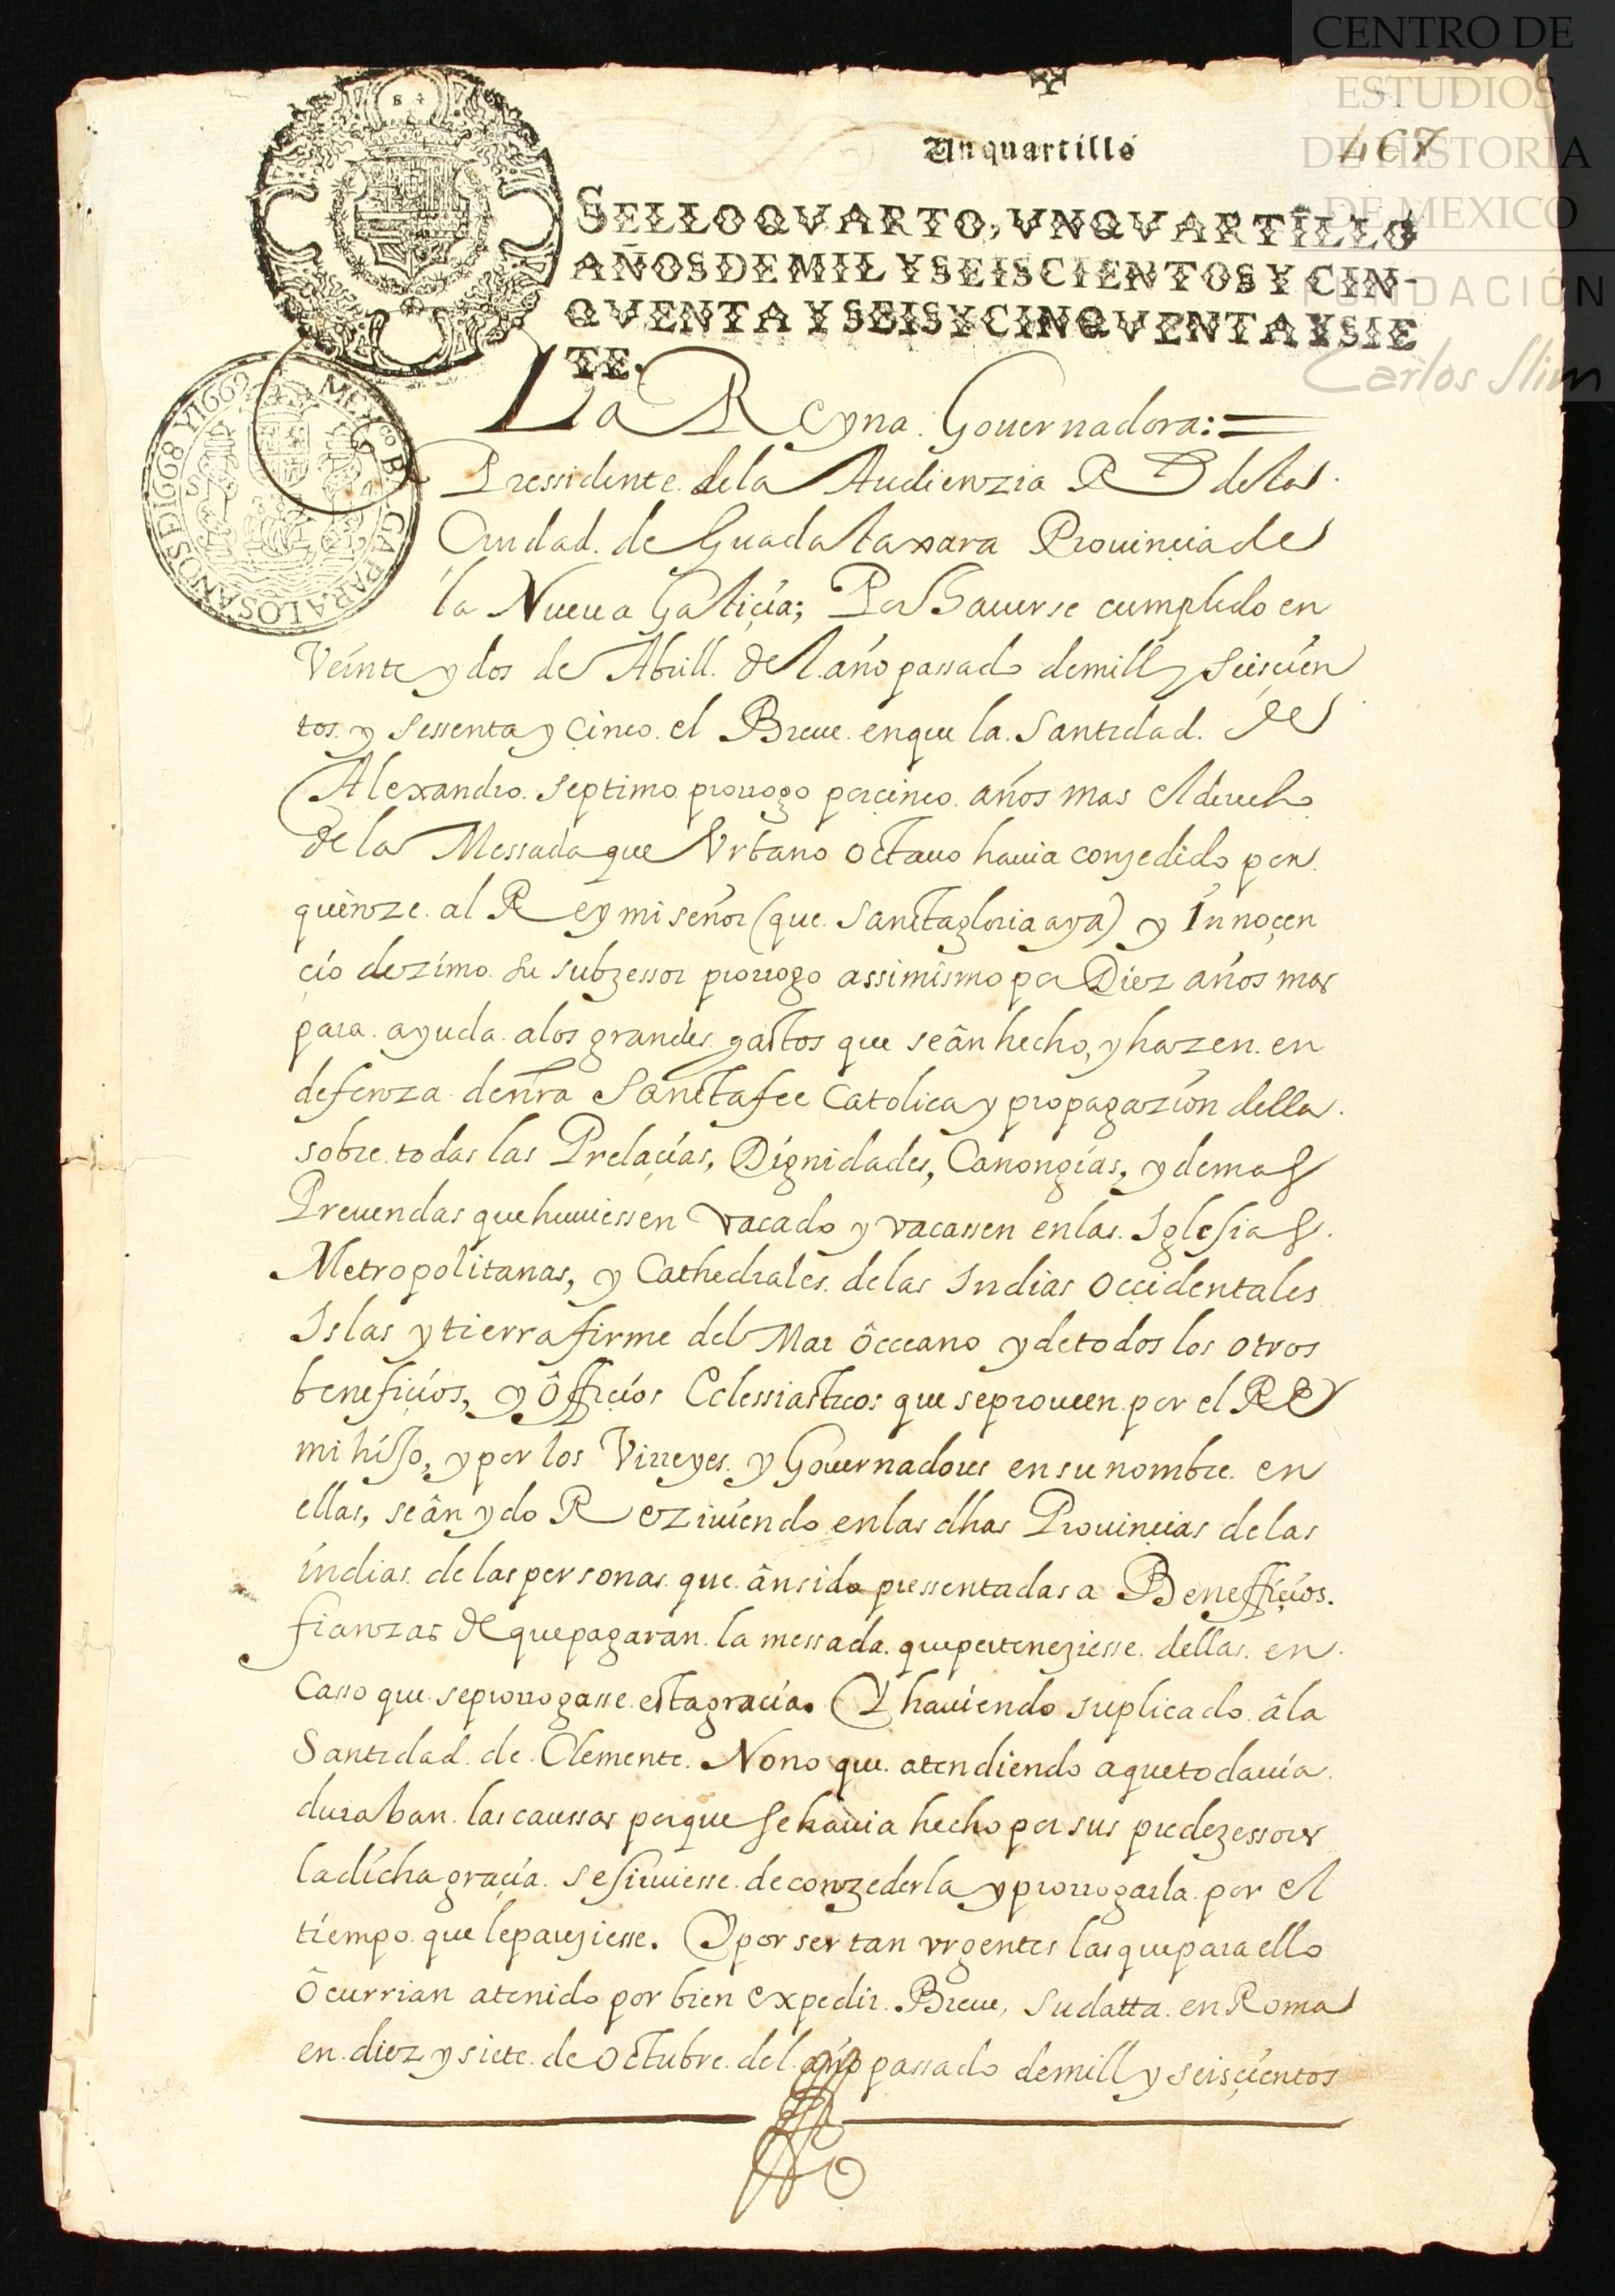 CENTRO DE
ESTUDIOS
DE HISTORIA
DE MEXICO
FUNDACIÓN
Carlos Slim
Un quartillo
467
SELLO QVARTO, VN QVARTILLO
AÑOS DE MIL Y SEISCIENTOS Y CIN-
QVENTA Y SEIS Y CINQVENTA Y SIE
TE.
PARA LOS AÑOS D 1668 Y 1669
La Reyna Gouernadora:=
Pressidente de la Audienzia Rl de la
Ciudad de Guadalaxara Prouinçia de
la Nueua Galiçia; Por Hauerse cumplido en
Veinte y dos de Abrill del año passado de mill y seisçien
tos y sessenta y çinco el Breue en que la Santidad de
Alexandro septimo prorrogo por cinco años mas el derecho
de la Messada que Vrbano octauo hauia conzedido por
quinze al Rey mi señor (que sancta gloria aya) y Innoçen
çio dezimo su subzessor prorrogo assimismo por Diez años mas
para ayuda a los grandes gastos que se ân hecho, y hazen en
defenza de nra Sancta fee Catolica y propagazion della
sobre todas las Prelaçias, Dignidades, Canongias, y demas
Preuendas que huuiessen vacado y vacassen en las Iglesias
Metropolitanas, y Cathedrales de las Indias Occidentales
Islas y tierra firme del Mar ôcceano y de todos los otros
benefiçios, y ôffiçios Eclessiasticos que se proueen por el Rey
mi hijo, y por los Virreyes y Gouernadores en su nombre en
ellas, se ân ydo Reziuiendo en las dhas Prouinçias de las
indias de las personas que ân sido pressentadas a Beneffiçios
fianzas de que pagaran la messada que perteneziesse dellas en
Casso que se prorrogasse esta graçia. Y hauiendo suplicado â la
Santidad de Clemente Nono que atendiendo a que todauia
duraban las caussas porque se hauia hecho por sus predezessores
la dicha graçia se siruiesse de conzederla y prorrogarla por el
tiempo que le pareziesse. Y por ser tan vrgentes las que para ello
ôcurrian a tenido por bien expedir Breue, su datta en Roma
en diez y siete de octubre del año passado de mill y seisçientos